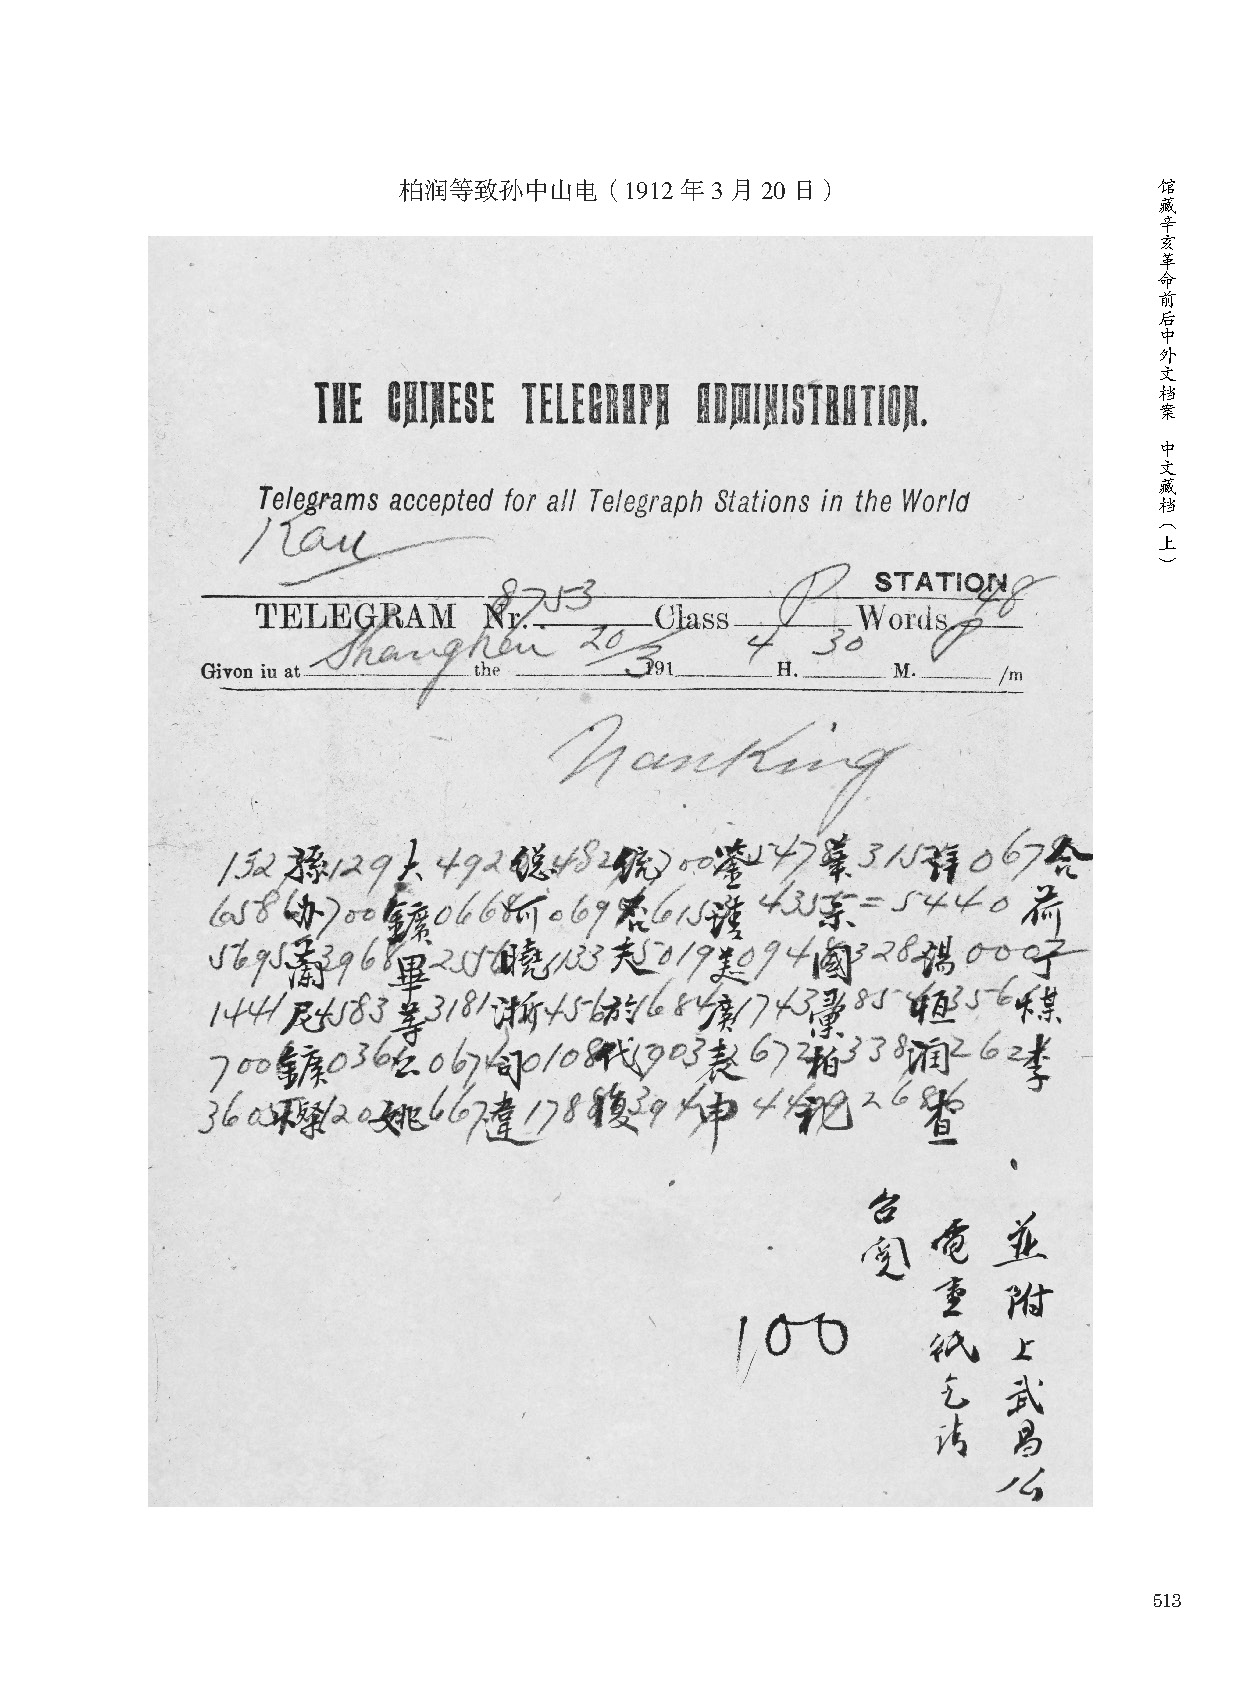 柏润等致孙中山电（1912年3月20日）
馆藏辛亥革命前后中外文档案 中文藏档（上）
THE CHINESE TELEGRAPH ADMINISTRATION.
Telegrams accepted for all Telegraph Stations in the World
STATION
TELEGRAM Nr. 8753 Class P Words 48
Givon iu at Shanghai the 20/3 191 4 H. 30 M. /m
Nanking
132 孫 129 大 492 總 482 統 700 鑒 547 華 315 詳 067 合
658 办 700 鑛 0668 何 069 否 615 謹 435 奈 = 5440 荷
5695 蘭 3968 畢 255 曉 5133 夫 5019 美 094 國 328 湯 000 于
1441 尼 4583 等 3181 浙 456 於 1684 廣 1743 彙 85 恒 356 煤
700 鑛 036 公 0674 司 0108 代 5903 表 672 柏 338 润 262 李
360 檪 120 姚 667 違 1788 復 394 申 4499 祀 2686 督
並附上武昌公
電壹紙乞請
台閱
100
513